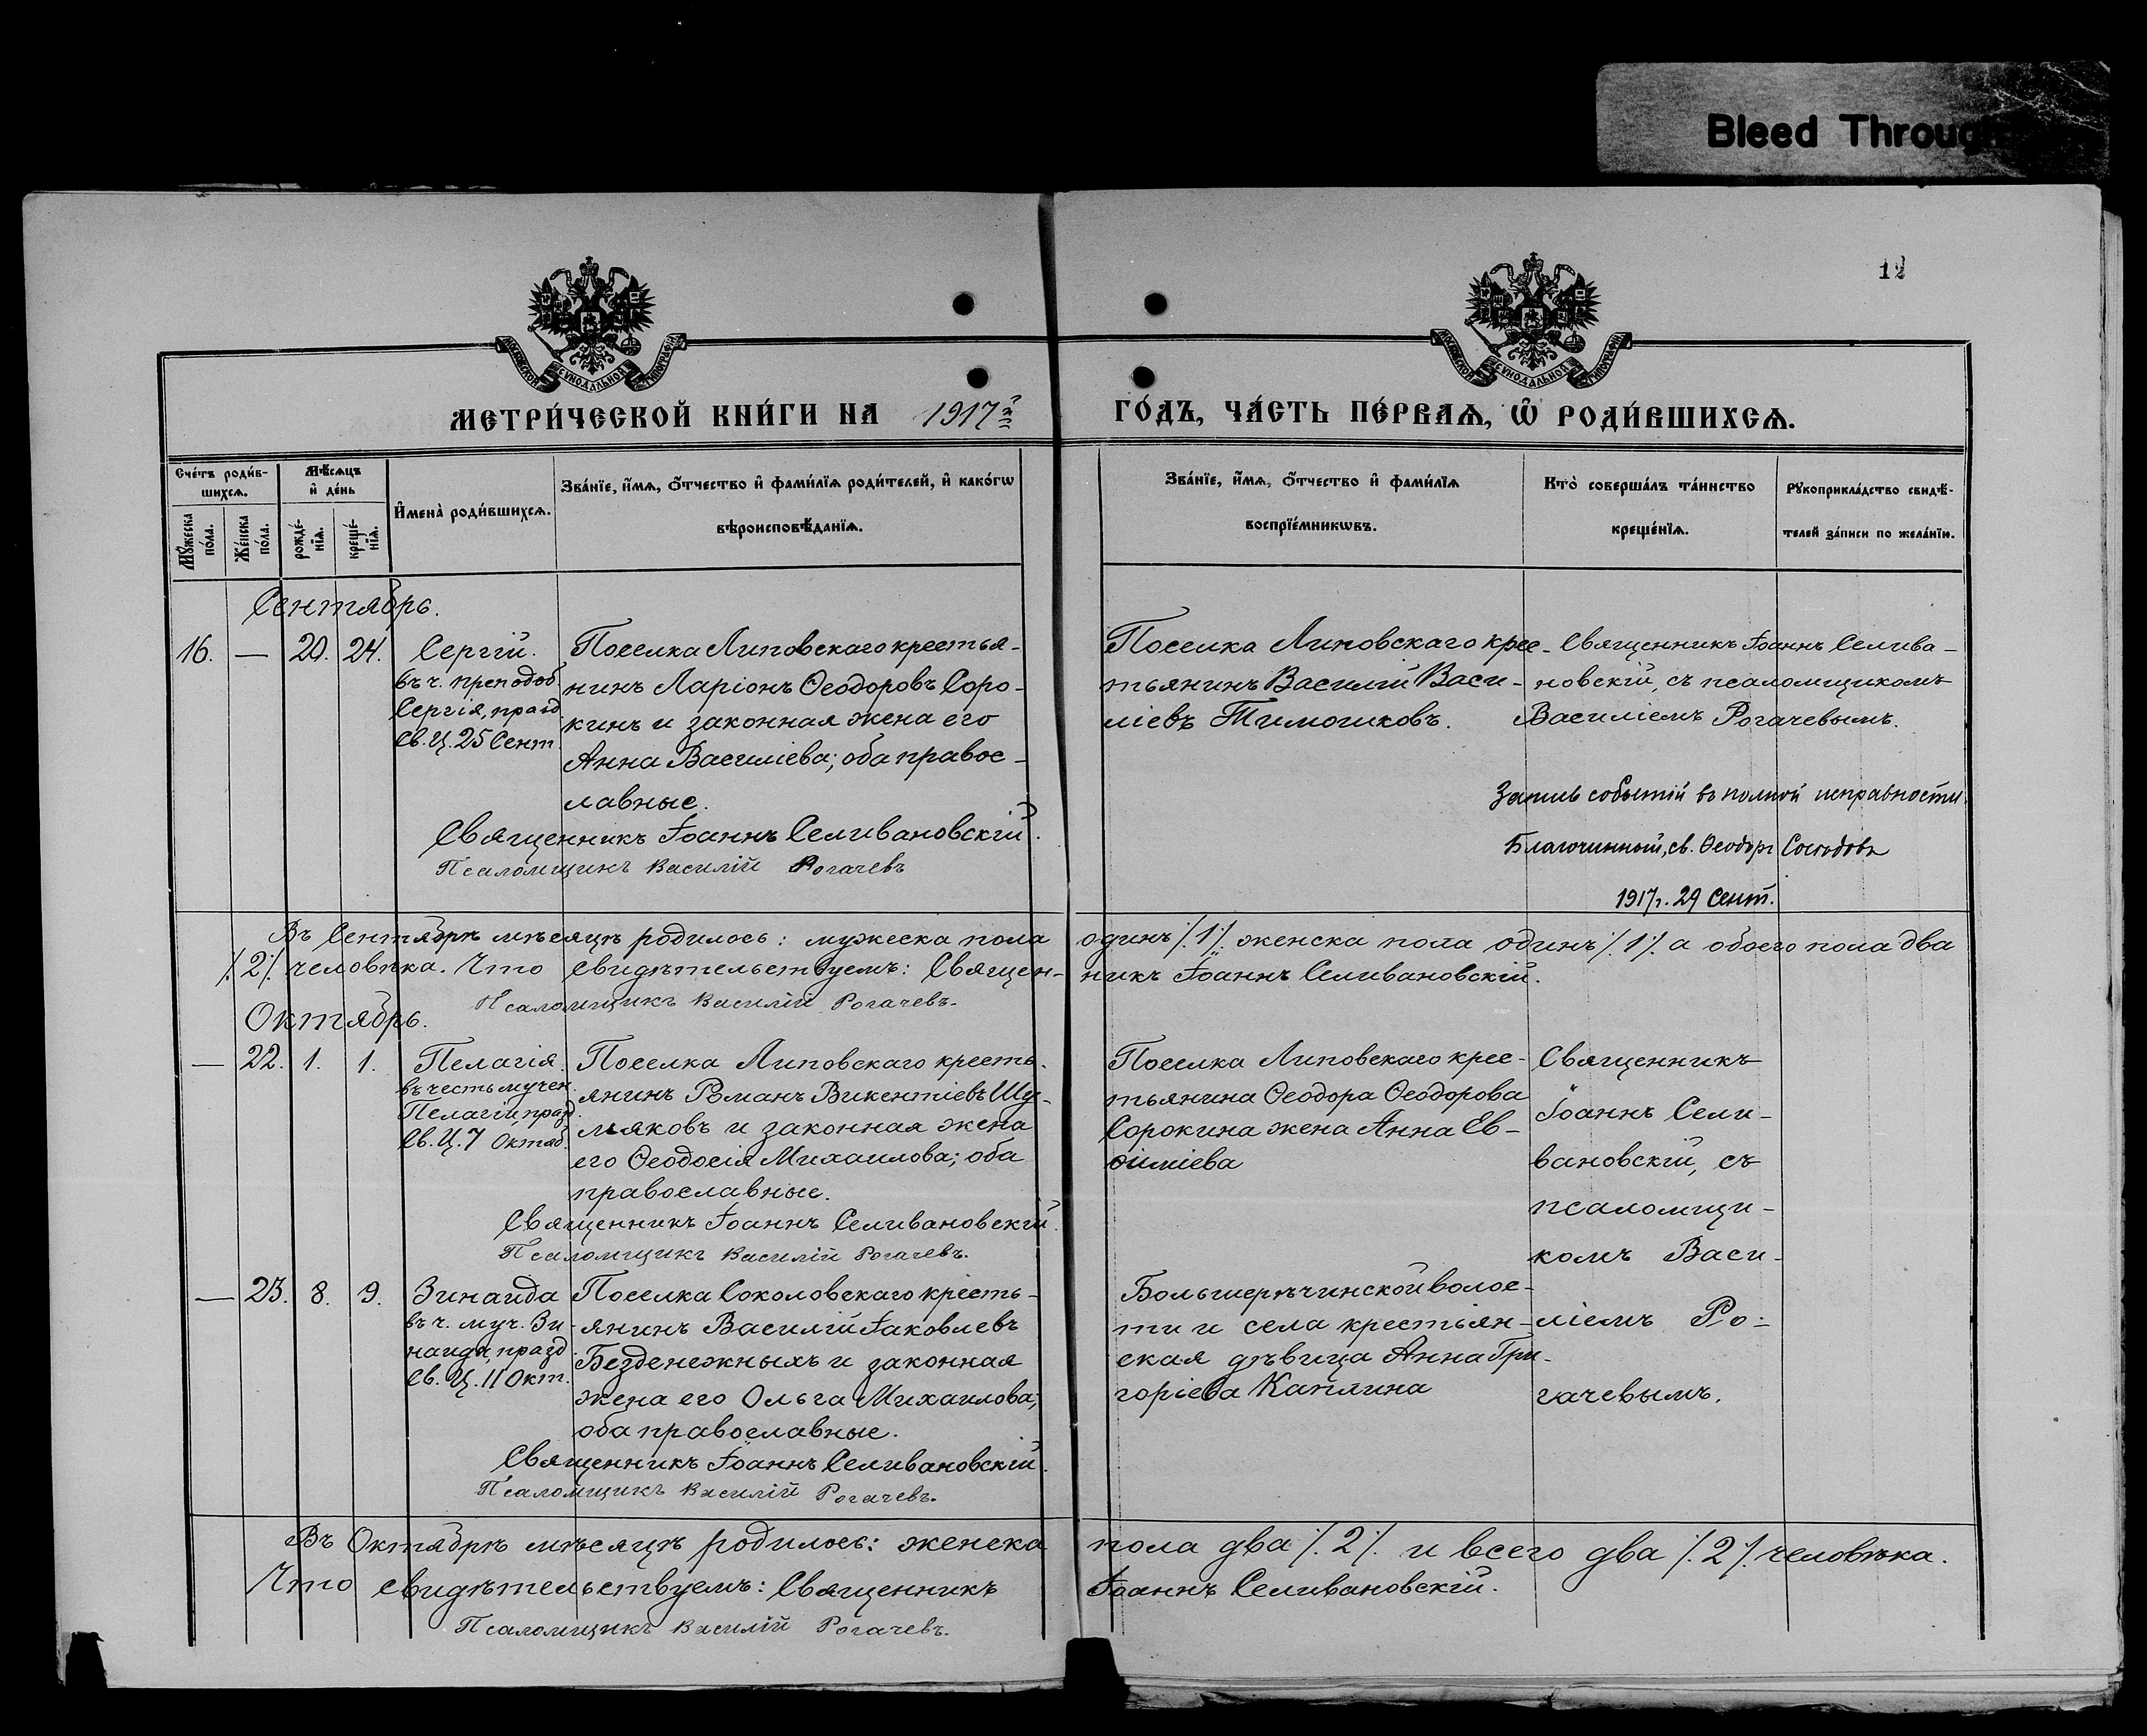 Bleed Through
12
МОСКОВСКОЙ СѴНОДАЛЬНОЙ ТИПОГРАФІИ
МОСКОВСКОЙ СѴНОДАЛЬНОЙ ТИПОГРАФІИ
МЕТРИ́ЧЕСКОЙ КНИ́ГИ НА 1917й ГО́ДЪ, ЧА́СТЬ ПЕ́РВАѦ, Ѡ҆ РОДИ́ВШИХСѦ.
Сче́тъ роди́в-
шихсѧ.
Мѣ́сѧцъ
и҆ де́нь
Мꙋ́жеска по́ла.
Же́нска по́ла.
рожде́-
нїѧ.
креще́-
нїѧ.
И҆мена̀ роди́вшихсѧ.
Зва́нїе, и҆́мѧ, ѻ҆́тчество и҆ фами́лїѧ роди́телей, и҆ како́гѡ
вѣроисповѣ́данїѧ.
Зва́нїе, и҆́мѧ, ѻ҆́тчество и҆ фами́лїѧ
воспрїе́мникѡвъ.
Кто̀ соверша́лъ та́инство
креще́нїѧ.
Рꙋкоприкла́дство свидѣ́-
телей за́писи по жела́нїю.
Сентябрь.
16. — 20. 24. Сергій.
въ ч. преподоб.
Сергія, празд
Св. Ц. 25 Сент.
Поселка Липовскаго крестья-
нинъ Ларіонъ Ѳеодоровъ Соро-
кинъ и законная жена его
Анна Василіева; оба правос-
лавные.
Священникъ Іоаннъ Селивановскій.
Псаломщикъ Василій Рогачевъ
Поселка Липовскаго крес-
тьянинъ Василій Васи-
ліевъ Тимошковъ.
Священникъ Іоаннъ Селива-
новскій, съ псаломщикомъ
Василіемъ Рогачевымъ.
Запись событій въ полной исправности.
Благочинный, св. Ѳеодоръ
1917 г. 29 Сент.
Въ Сентябрѣ мѣсяцѣ родилось: мужеска пола одинъ /.1/. женска пола одинъ /.1/. а обоего пола два
/.2/. человѣка. Что свидѣтельствуемъ: Священ-никъ Іоаннъ Селивановскій.
Псаломщикъ Василій Рогачевъ.
Октябрь.
— 22. 1. 1. Пелагія.
въ честь мучен.
Пелагіи, празд.
Св. Ц. 7 Октяб.
Поселка Липовскаго кресть-
янинъ Романъ Викентіевъ Шу-
мяковъ и законная жена
его Ѳеодосія Михаилова; оба
православные.
Священникъ Іоаннъ Селивановскій.
Псаломщикъ Василій Рогачевъ.
Поселка Липовскаго крес-
тьянина Ѳеодора Ѳеодорова
Сорокина жена Анна Ев-
ѳиміева
Священникъ
Іоаннъ Сели-
вановскій, съ
псаломщи-
комъ Васи-
ліемъ Ро-
гачевымъ.
— 23. 8. 9. Зинаида
въ ч. муч. Зи-
наиды, празд.
Св. Ц. 11 Окт.
Поселка Соколовскаго кресть-
янинъ Василій Іаковлевъ
Безденежныхъ и законная
жена его Ольга Михаилова;
оба православные.
Священникъ Іоаннъ Селивановскій.
Псаломщикъ Василій Рогачевъ.
Большерѣчинской волос-
ти и села крестьян-
ская дѣвица Анна Гри-
горіева Каплина
Въ Октябрѣ мѣсяцѣ родилось: женска пола два /.2/. и всего два /.2/. человѣка.
Что свидѣтельствуемъ: Священникъ Іоаннъ Селивановскій.
Псаломщикъ Василій Рогачевъ.